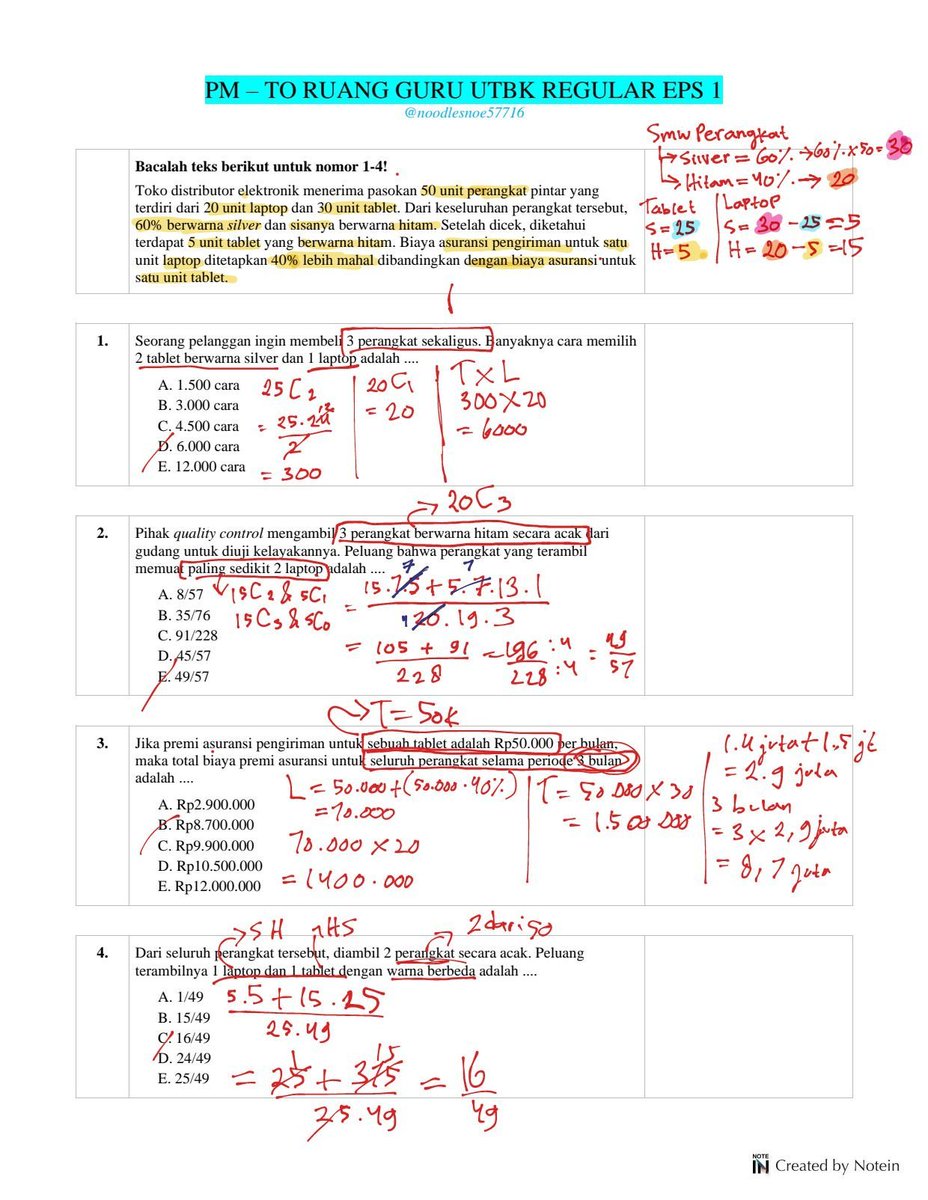 PM – TO RUANG GURU UTBK REGULAR EPS 1
@noodlesnoe57716
Smw Perangkat
Silver = 60% → 60% x 50 = 30
Hitam = 40% → 20
Tablet
S = 25
H = 5
Laptop
S = 30 - 25 = 5
H = 20 - 5 = 15
Bacalah teks berikut untuk nomor 1-4!
Toko distributor elektronik menerima pasokan 50 unit perangkat pintar yang
terdiri dari 20 unit laptop dan 30 unit tablet. Dari keseluruhan perangkat tersebut,
60% berwarna silver dan sisanya berwarna hitam. Setelah dicek, diketahui
terdapat 5 unit tablet yang berwarna hitam. Biaya asuransi pengiriman untuk satu
unit laptop ditetapkan 40% lebih mahal dibandingkan dengan biaya asuransi untuk
satu unit tablet.
1. Seorang pelanggan ingin membeli 3 perangkat sekaligus. Banyaknya cara memilih
2 tablet berwarna silver dan 1 laptop adalah ....
A. 1.500 cara
B. 3.000 cara
C. 4.500 cara
D. 6.000 cara
E. 12.000 cara
25C2
= 25.24 12
2
= 300
20C1
= 20
T x L
300 x 20
= 6000
→ 20C3
2. Pihak quality control mengambil 3 perangkat berwarna hitam secara acak dari
gudang untuk diuji kelayakannya. Peluang bahwa perangkat yang terambil
memuat paling sedikit 2 laptop adalah ....
A. 8/57
B. 35/76
C. 91/228
D. 45/57
E. 49/57
15C2 & 5C1
15C3 & 5C0
= 105 + 91
228
= 196 :4
228 :4
= 49
57
→ T = 50k
3. Jika premi asuransi pengiriman untuk sebuah tablet adalah Rp50.000 per bulan,
maka total biaya premi asuransi untuk seluruh perangkat selama periode 3 bulan
adalah ....
A. Rp2.900.000
B. Rp8.700.000
C. Rp9.900.000
D. Rp10.500.000
E. Rp12.000.000
L = 50.000 + (50.000 . 40%)
= 70.000
70.000 x 20
= 1400.000
T = 50.000 x 30
= 1.500.000
1.4 juta + 1.5 jt
= 2.9 juta
3 bulan
= 3 x 2,9 juta
= 8,7 juta
→ SH
HS
→ 2 dari 50
4. Dari seluruh perangkat tersebut, diambil 2 perangkat secara acak. Peluang
terambilnya 1 laptop dan 1 tablet dengan warna berbeda adalah ....
A. 1/49
B. 15/49
C. 16/49
D. 24/49
E. 25/49
5.5 + 15.25
25.49
1 15
= 25 + 375
25.49
= 16
49
NOTE IN Created by Notein